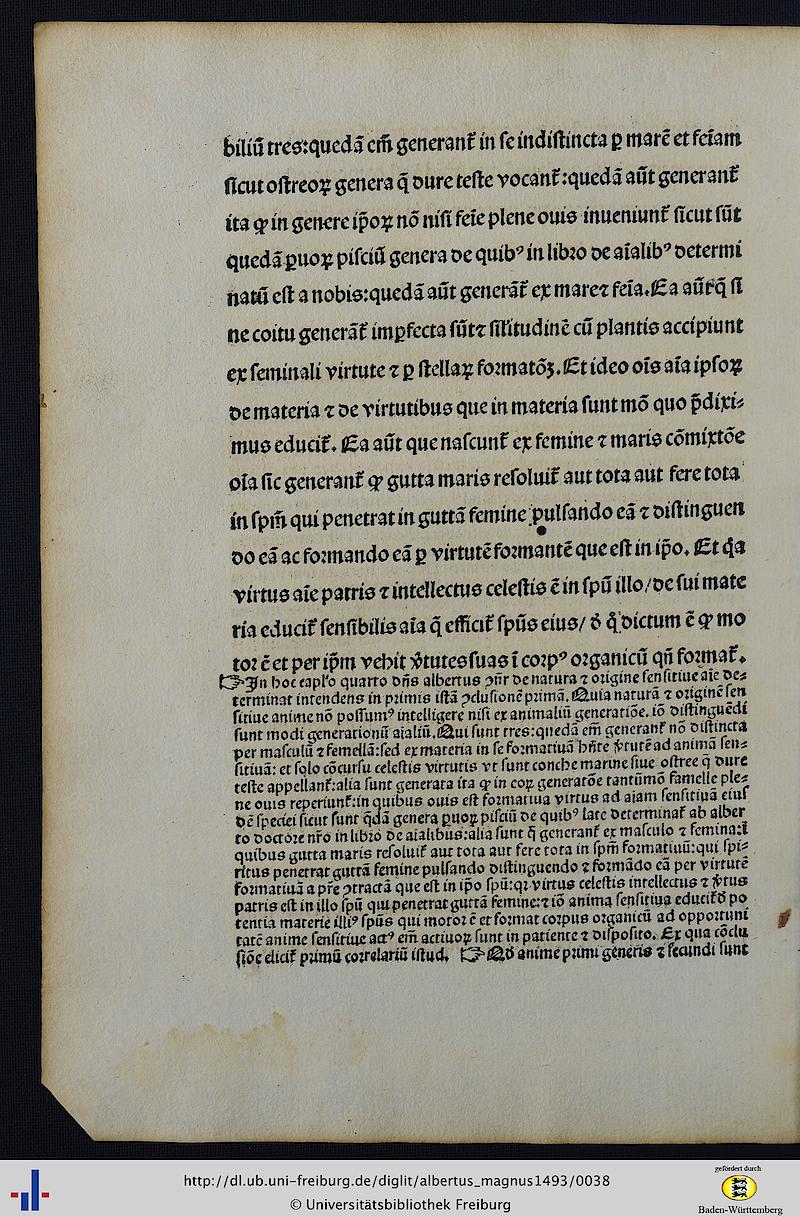 biliū tres:quedā em̄ generant᷑ in se indistincta ꝑ marē et feīam
sicut ostreoꝝ genera q̄ dure teste vocant᷑:quedā aūt generant᷑
ita ꝙ in genere ip̄oꝝ nō nisi feīe plene ouis inueniunt᷑ sicut sūt
quedā ꝑuoꝝ pisciū genera de quibꝰ in libro de aīalibꝰ determi
natū est a nobis:quedā aūt generāt᷑ ex mare ⁊ feīa. Ea aūt q̄ si
ne coitu generāt᷑ imꝑfecta sūt ⁊ sil'itudinē cū plantis accipiunt
ex seminali virtute ⁊ ꝑ stellaꝝ formatōꝫ. Et ideo oīs aīa ipsoꝝ
de materia ⁊ de virtutibus que in materia sunt mō quo p̄dixi⸗
mus educit᷑. Ea aūt que nascunt᷑ ex femine ⁊ maris cōmixtōe
oīa sic generant᷑ ꝙ gutta maris resoluit᷑ aut tota aut fere tota
in spm̄ qui penetrat in guttā femine pulsando eā ⁊ distinguen
do eā ac formando eā ꝑ virtutē formantē que est in ip̄o. Et q̇a
virtus aīe patris ⁊ intellectus celestis ē in spū illo/de sui mate
ria educit᷑ sensibilis aīa q̄ efficit᷑ spūs eius/ ð qͦ dictum ē ꝙ mo
tor ē et per ip̄m vehit v̄tutes suas ī corpꝰ organicū qn̄ format᷑.
☞In hoc capl'o quarto dn̄s albertus ꝯn̄r de natura ⁊ origine sensitiue aīe de⸗
terminat intendens in primis istā ꝯclusionē primā. Quia naturā ⁊ originē sen
sitiue anime nō possumꝰ intelligere nisi ex animaliū generatiōe. iō distinguēdi
sunt modi generationū aīaliū. Qui sunt tres:quedā em̄ generant᷑ nō distincta
per masculū ⁊ femellā:sed ex materia in se formatiuā hn̄te v̄tutē ad animā sen⸗
sitiuā: et solo cōcursu celestis virtutis vt sunt conche marine siue ostree q̄ dure
teste appellant᷑:alia sunt generata ita ꝙ in eoꝝ generatōe tantūmō famelle ple⸗
ne ouis reperiunt᷑:in quibus ouis est formatiua virtus ad aīam sensitiuā eius
dē speciei sicut sunt q̄dā genera ꝑuoꝝ pisciū de quibꝰ late determinat᷑ ab alber
to doctore nr̄o in libro de aīalibus:alia sunt q̄ generant᷑ ex masculo ⁊ femina:ī
quibus gutta maris resoluit᷑ aut tota aut fere tota in spm̄ formatiuū:qui spi⸗
ritus penetrat guttā femine pulsando distinguendo ⁊ formādo eā per virtutē
formatiuā a pr̄e ꝯtractā que est in ip̄o spū:qꝛ virtus celestis intellectus ⁊ v̄tus
patris est in illo spū qui penetrat guttā femine:⁊ iō anima sensitiua educit᷑ ð po
tentia materie illiꝰ spūs qui motor ē et format corpus organicū ad opportuni
tatē anime sensitiue actꝰ em̄ actiuoꝝ sunt in patiente ⁊ disposito. Ex qua cōclu
siōe elicit᷑ primū correlariū istud. ☞Qð anime primi generis ⁊ secundi sunt
http://dl.ub.uni-freiburg.de/diglit/albertus_magnus1493/0038
© Universitätsbibliothek Freiburg
gefördert durch
Baden-Württemberg